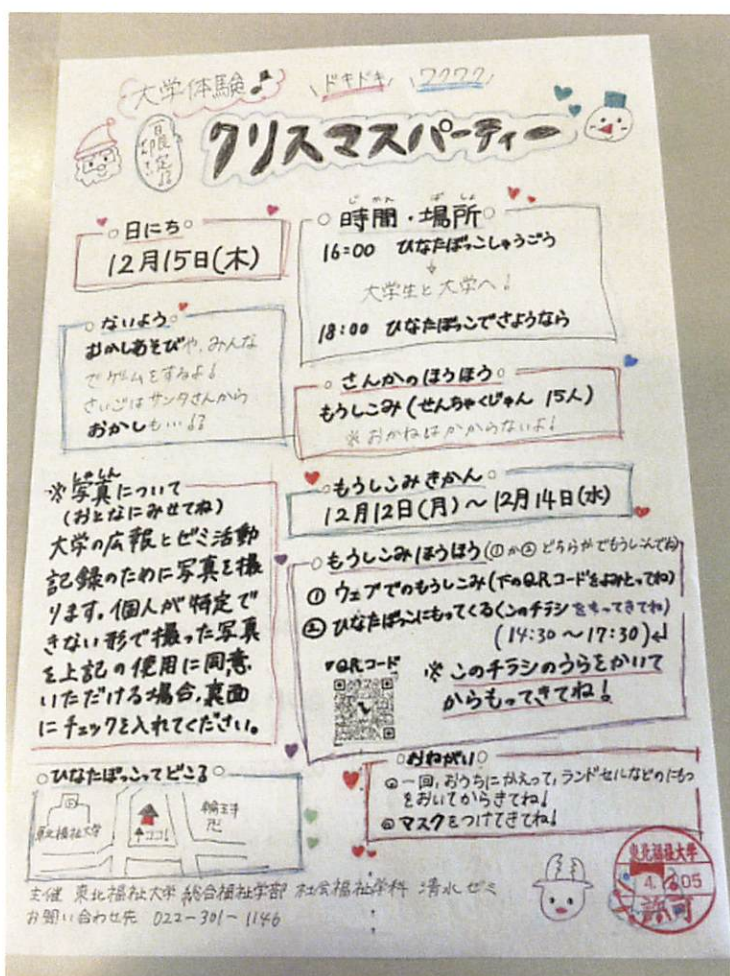 大学体験♪
\ドキドキ/ \ワクワク/
限定!!
クリスマスパーティー
日にち
12月15日(木)
じかん ばしょ
時間・場所
16:00 ひなたぼっこしゅうごう
↓
大学生と大学へ!
18:00 ひなたぼっこでさようなら
ないよう
むかしあそびや、みんな
でゲームをするよ!
さいごはサンタさんから
おかしも…!?
さんかのほうほう
もうしこみ(せんちゃくじゅん 15人)
※おかねはかからないよ!
もうしこみきかん
12月12日(月)～12月14日(水)
しゃしん
※写真について
(おとなにみせてね)
大学の広報とゼミ活動
記録のために写真を撮
ります。個人が特定で
きない形で撮った写真
を上記の使用に同意
いただける場合、裏面
にチェックを入れてください。
もうしこみほうほう(①か②どちらかでもうしこんでね)
① ウェブでのもうしこみ(下のQRコードをよみとってね)
② ひなたぼっこにもってくる(このチラシをもってきてね)
(14:30～17:30)
▼QRコード
※このチラシのうらをかいて
からもってきてね!
ひなたぼっこってどこ?
東北福祉大学
↑ココ!
輪王寺
卍
おねがい
◎一回、おうちにかえって、ランドセルなどのにもつ
をおいてからきてね!
◎マスクをつけてきてね!
主催 東北福祉大学 総合福祉学部 社会福祉学科 清水ゼミ
お問い合わせ先 022-301-1146
東北福祉大学
許可